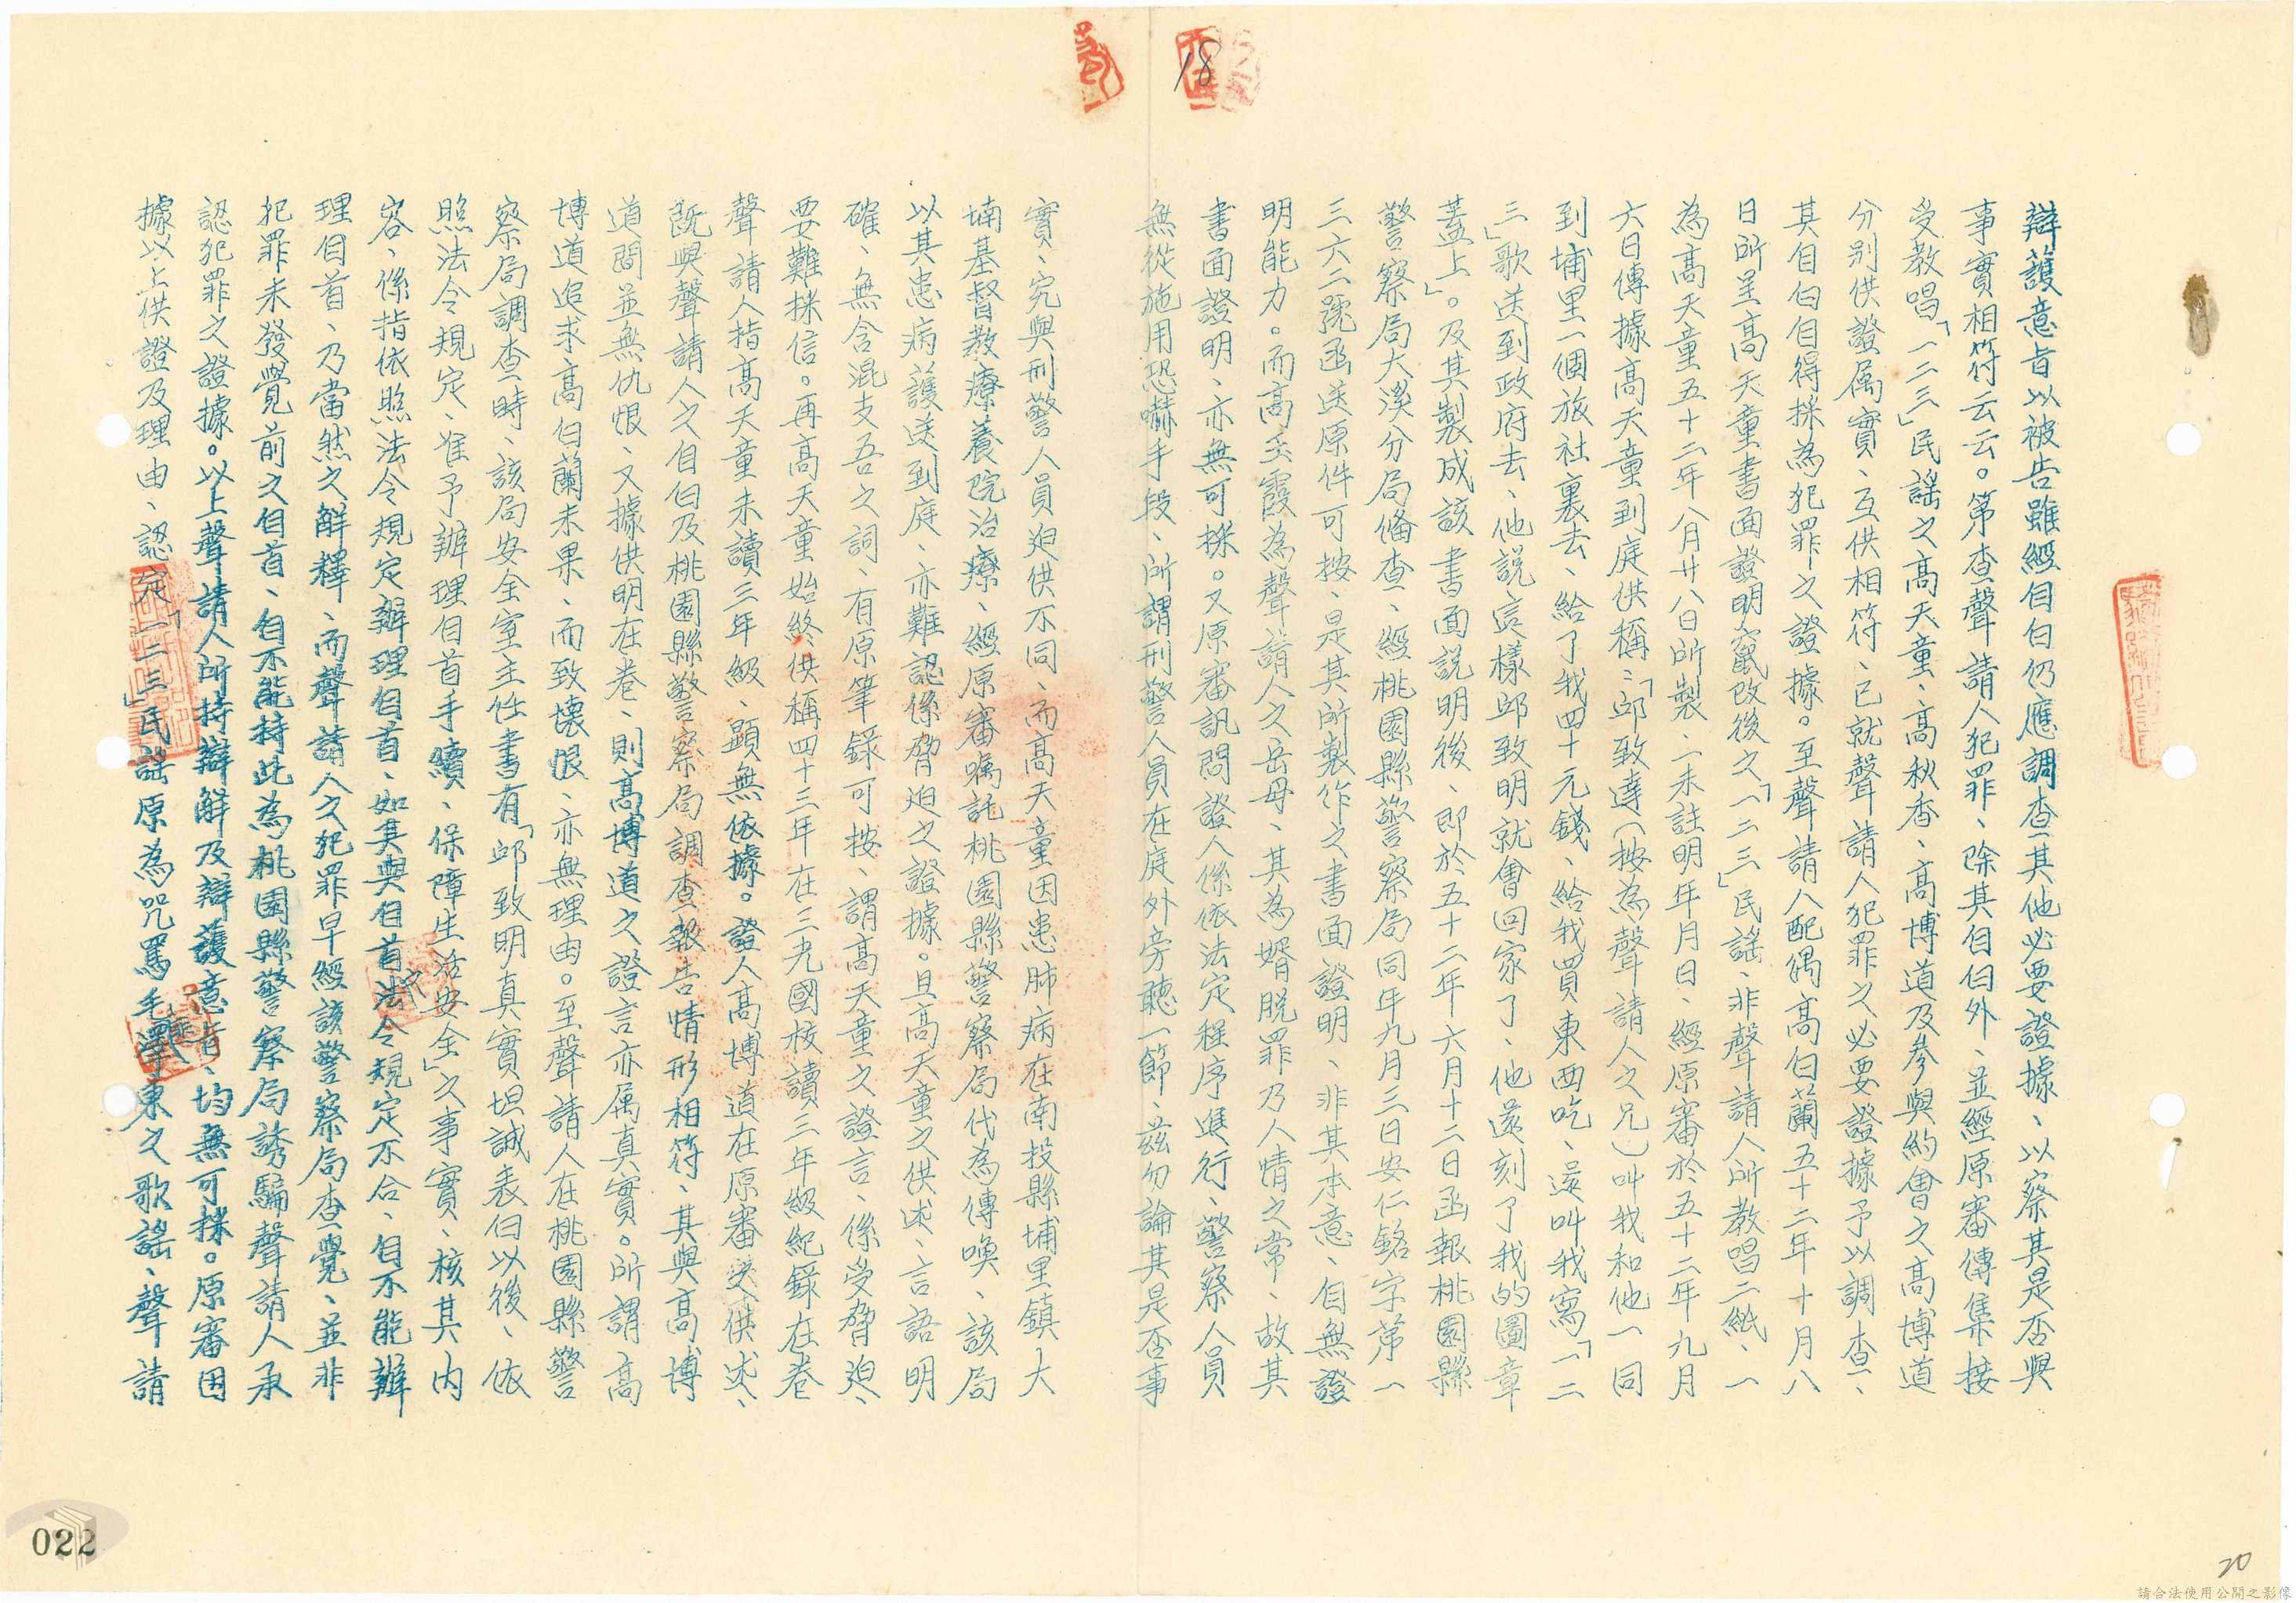 18
辯護意旨以被告雖經自白仍應調查其他必要證據、以察其是否與
事實相符云云。第查聲請人犯罪、除其自白外、並經原審傳集接
受教唱「一二三」民謠之高天童、高秋香、高博道及參與約會之高博道
分別供證属實、互供相符、已就聲請人犯罪之必要證據予以調查、
其自白自得採為犯罪之證據。至聲請人配偶高白蘭五十二年十月八
日所呈高天童書面證明竄改後之「一二三」民謠、非聲請人所教唱二紙、一
為高天童五十二年八月廿八日所製、一未註明年月日、經原審於五十二年九月
六日傳據高天童到庭供稱：「邱致達（按為聲請人之兄）叫我和他一同
到埔里一個旅社裏去、給了我四十元錢、給我買東西吃、還叫我寫「一二
三」歌送到政府去、他說這樣邱致明就會回家了、他還刻了我的圖章
蓋上」。及其製成該書面說明後、即於五十二年六月十二日函報桃園縣
警察局大溪分局備查、經桃園縣警察局同年九月三日安仁銘字第一
三六二號函送原件可按、是其所製作之書面證明、非其本意、自無證
明能力。而高玉霞為聲請人之岳母、其為婿脱罪乃人情之常、故其
書面證明、亦無可採。又原審訊問證人係依法定程序進行、警察人員
無從施用恐嚇手段、所謂刑警人員在庭外旁聽一節、茲勿論其是否事
實、究與刑警人員迫供不同、而高天童因患肺病在南投縣埔里鎮大
埔基督教療養院治療、經原審囑託桃園縣警察局代為傳喚、該局
以其患病護送到庭、亦難認係脅迫之證據。且高天童之供述、言語明
確、無含混支吾之詞、有原筆錄可按、謂高天童之證言、係受脅迫、
要難採信。再高天童始終供稱四十三年在三光國校讀三年級紀錄在卷
聲請人指高天童未讀三年級、顯無依據。證人高博道在原審之供述、
既與聲請人之自白及桃園縣警察局調查報告情形相符、其與高博
道問並無仇恨、又據供明在卷、則高博道之證言亦属真實。所謂高
博道追求高白蘭未果、而致懷恨、亦無理由。至聲請人在桃園縣警
察局調查時、該局安全室主任書有「邱致明真實坦誠表白以後、依
照法令規定、准予辦理自首手續、保障生活安全」之事實、核其內
容、係指依照法令規定辦理自首、如其與自首法令規定不合、自不能辦
理自首、乃當然之解釋、而聲請人之犯罪早經該警察局查覺、並非
犯罪未發覺前之自首、自不能持此為桃園縣警察局誘騙聲請人承
認犯罪之證據。以上聲請人所持辯解及辯護意旨、均無可採。原審因
據以上供證及理由、認定「一二三」民謠原為咒罵毛澤東之歌謠、聲請
022
20
請合法使用公開之影像